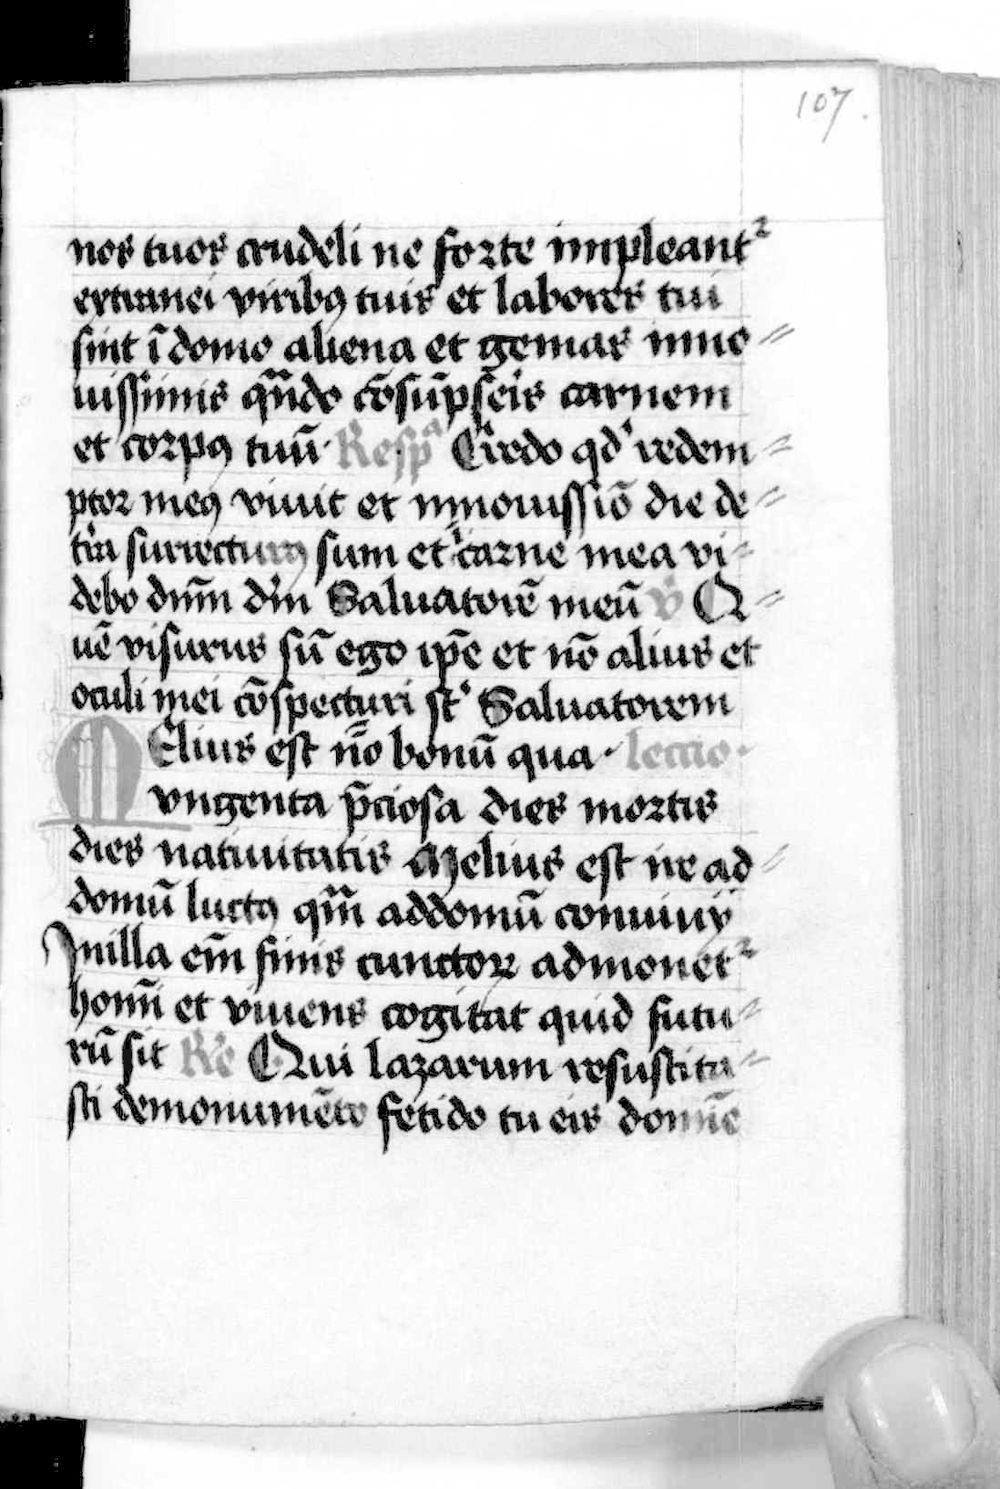 107.
nos tuos crudeli ne forte impleant²
extranei viribꝯ tuis et labores tui
sint ī domo aliena et gemas inno⸗
uissimis qn̄do cōsūps̄eis carnem
et corpꝯ tuū· Resp̄ᵃ Credo qd' redem⸗
ptor meꝯ viuit et innouissiō die de⸗
tr̄a surrecturꝯ sum et ī carne mea vi⸗
debo dnm̄ dm̄ Saluatorē meū v̊ Q⸗
uē visurus sū ego ip̄e et nō alius et
oculi mei cōspecturi st̄' Saluatorem
MElius est nō bonū qua· lectio·
vngenta p̄ciosa dies mortis
dies natiuitatis Melius est ire ad⸗
domū luctꝯ qm̄ addomū conuiuij
Inilla em̄ finis cunctoꝝ admonet²
homī et viuens cogitat quid futu⸗
rū sit R̊e Qui lazarum resuscita⸗
sti demonumēto fetido tu eis domīe